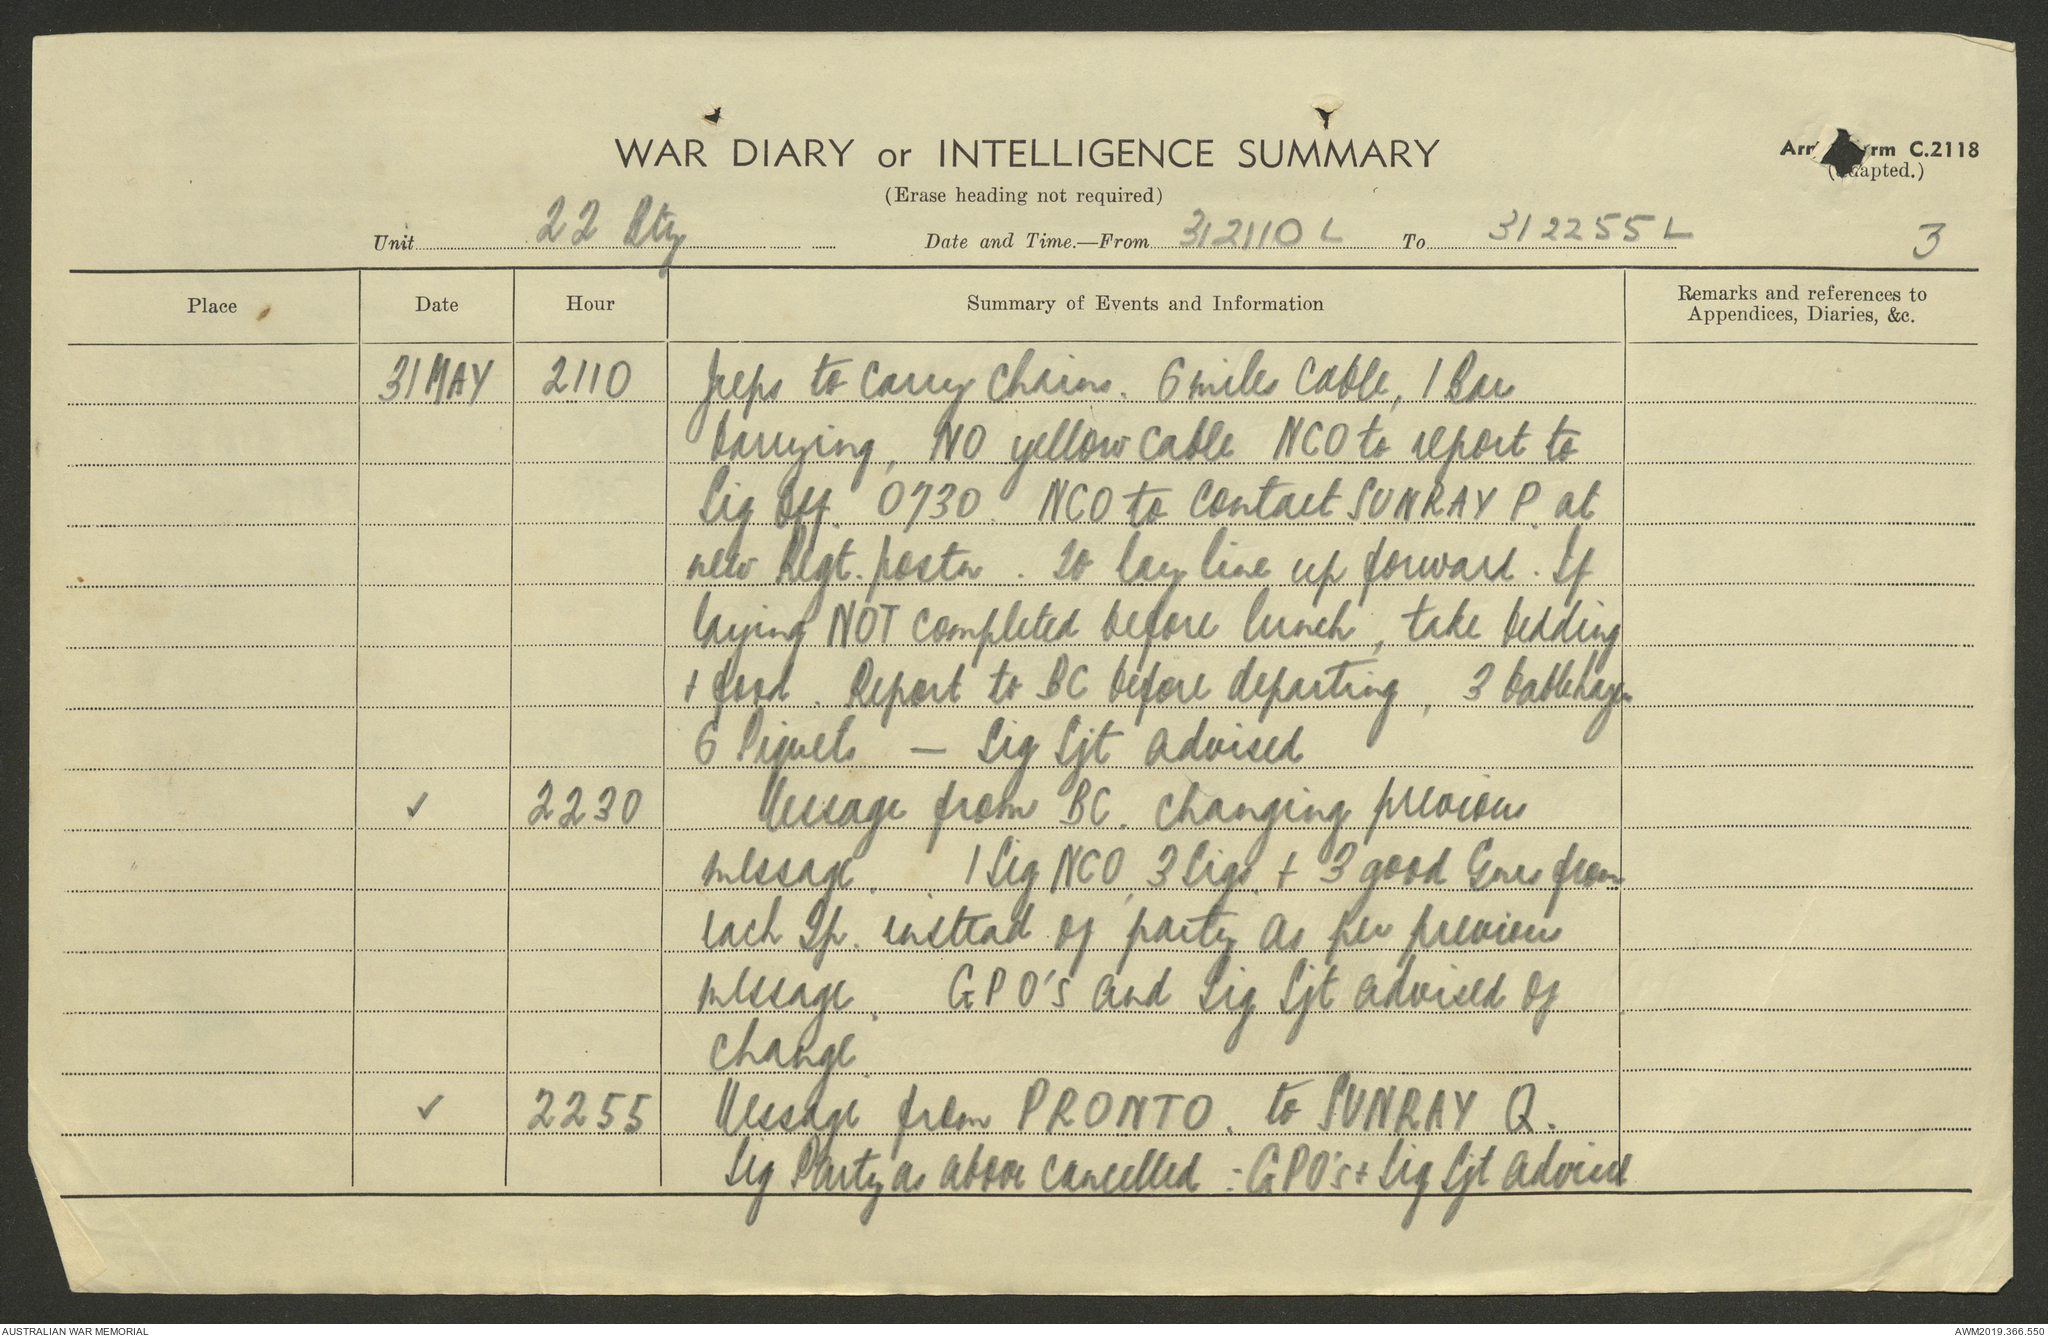 WAR DIARY or INTELLIGENCE SUMMARY
(Erase heading not required)
Army Form C.2118
(adapted.)
Unit 22 Bty Date and Time.—From 312110 L To 312255 L
3
Place Date Hour Summary of Events and Information Remarks and references to
Appendices, Diaries, &c.
31 MAY 2110 Jeeps to carry chains. 6 miles cable, 1 Bar
NO yellow cable NCO to report to
Sig Off. 0730. NCO to contact SUNRAY P. at
new Regt. posn. To lay line up forward. If
laying NOT completed before lunch, take bedding
+ food. Report to BC before departing, 3
6 Piquets — Sig Sjt advised
✓ 2230 Message from BC. changing previous
message. 1 Sig NCO, 3 Sigs. + 3 good Gnrs from
each Tp. instead of party as per previous
message. GPO's and Sig Sjt advised of
change.
✓ 2255 Message from PRONTO. to SUNRAY Q.
Sig Party as above cancelled :- GPO's + Sig Sjt advised
AUSTRALIAN WAR MEMORIAL
AWM2019.366.550